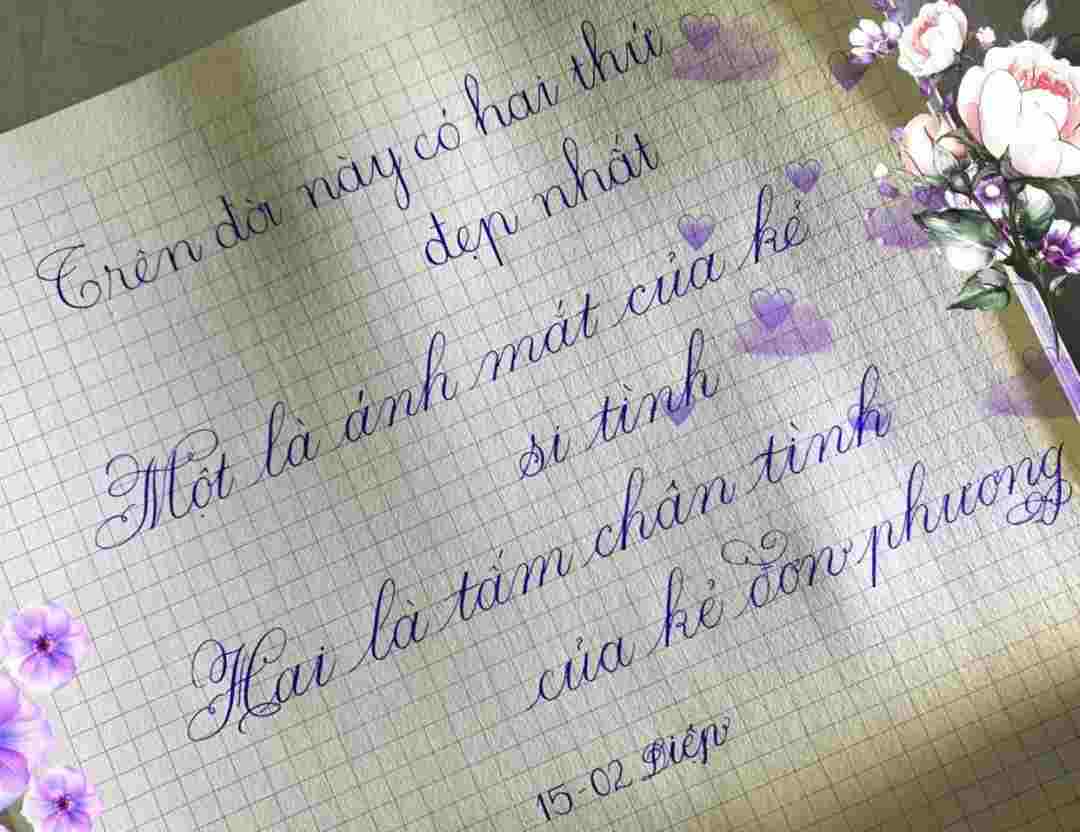 Trên đời này có hai thứ
đẹp nhất
Một là ánh mắt của kẻ
si tình
Hai là tấm chân tình
của kẻ đơn phương
15-02 Diệp